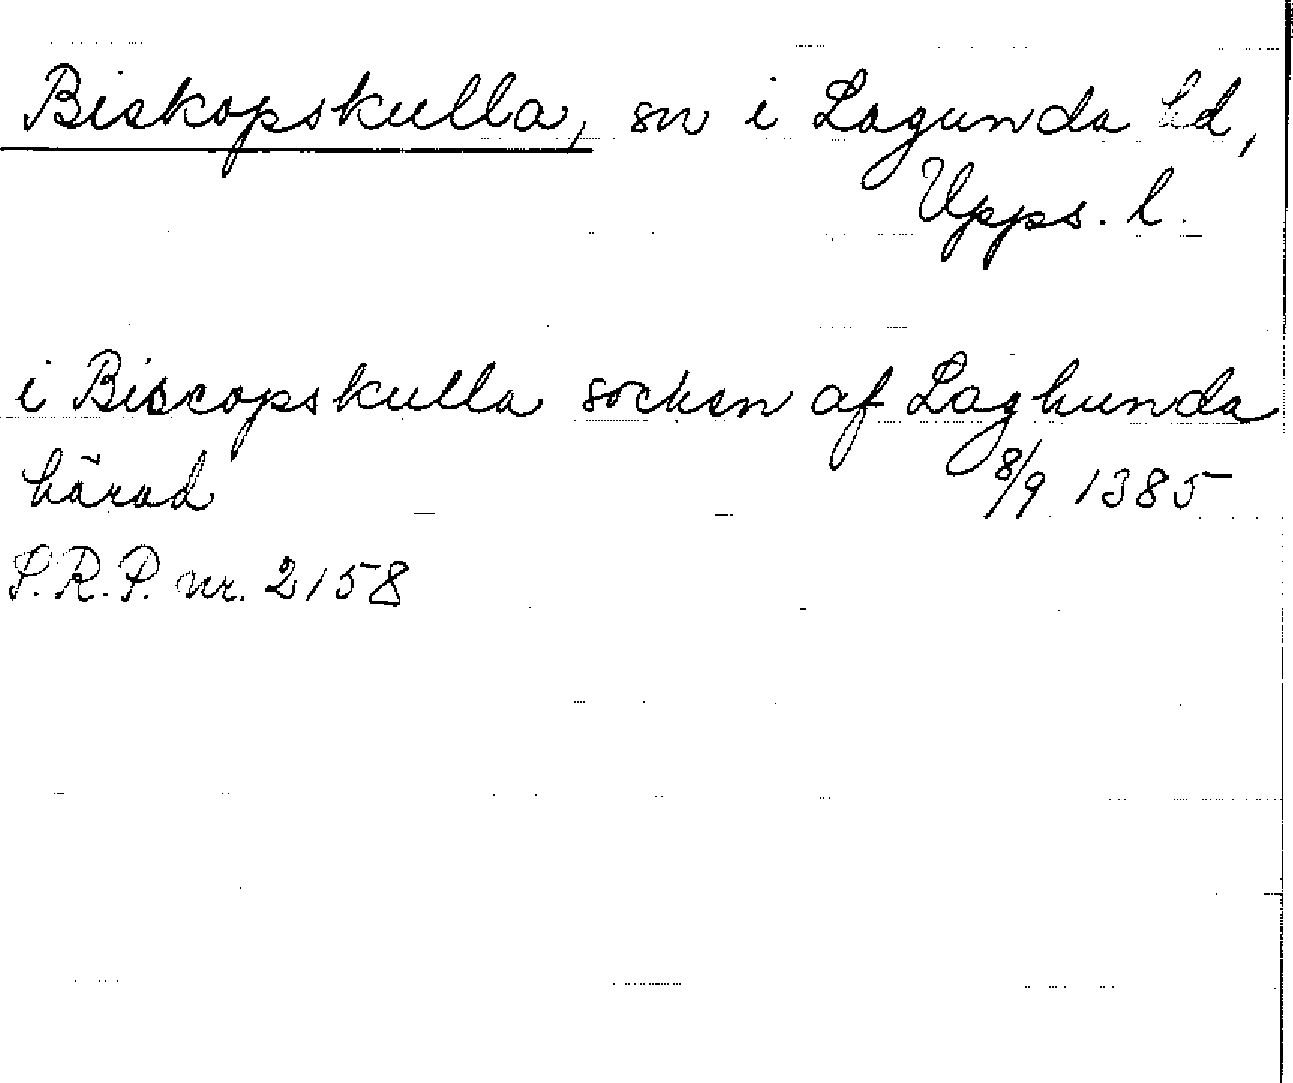 Biskopskulla, sn i Lagunda hd,
Upps. l.
i Biscopskulla socken af Laghunda
härad 8/9 1385
S.R.P. nr. 2158